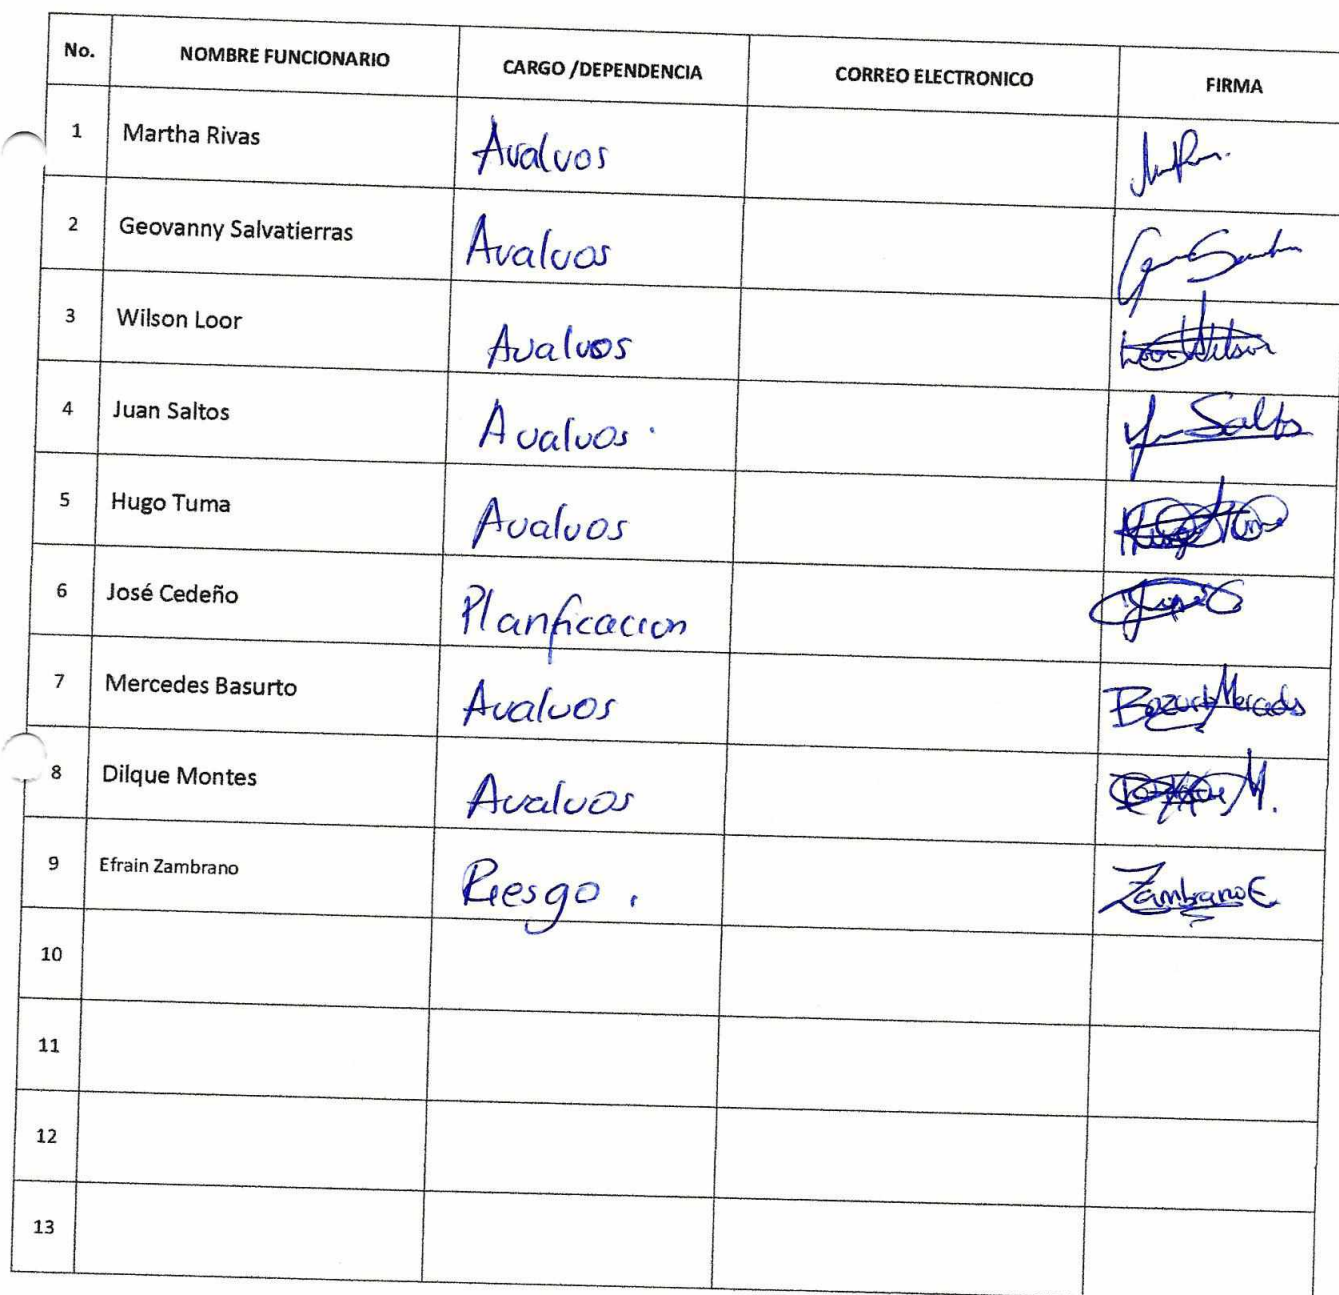 No. NOMBRE FUNCIONARIO CARGO /DEPENDENCIA CORREO ELECTRONICO FIRMA
1 Martha Rivas Avaluos
2 Geovanny Salvatierras Avaluos
3 Wilson Loor Avaluos Loor Wilson
4 Juan Saltos Avaluos. Saltos
5 Hugo Tuma Avaluos
6 José Cedeño Planficacion
7 Mercedes Basurto Avaluos Bazurto Mercedes
8 Dilque Montes Avaluos M.
9 Efrain Zambrano Riesgo. Zambrano E
10
11
12
13